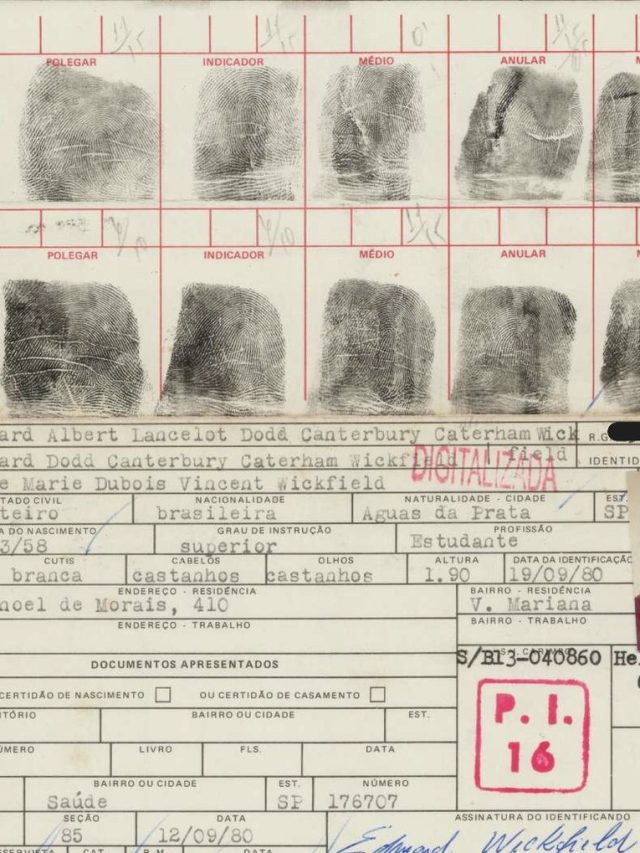 POLEGAR INDICADOR MÉDIO ANULAR M
POLEGAR INDICADOR MÉDIO ANULAR
ard Albert Lancelot Dodd Canterbury Caterham Wick R.G.
field
ard Dodd Canterbury Caterham Wickfield IDENTID
DIGITALIZADA
e Marie Dubois Vincent Wickfield
TADO CIVIL NACIONALIDADE NATURALIDADE - CIDADE EST.
teiro brasileira Aguas da Prata SP
A DO NASCIMENTO GRAU DE INSTRUÇÃO PROFISSÃO
3/58 superior Estudante
CUTIS CABELOS OLHOS ALTURA DATA DA IDENTIFICAÇÃO
branca castanhos castanhos 1.90 19/09/80
ENDEREÇO - RESIDÊNCIA BAIRRO - RESIDÊNCIA
noel de Morais, 410 V. Mariana
ENDEREÇO - TRABALHO BAIRRO - TRABALHO
S/B13-040860 He
DOCUMENTOS APRESENTADOS
CERTIDÃO DE NASCIMENTO OU CERTIDÃO DE CASAMENTO
P. I.
16
TÓRIO BAIRRO OU CIDADE EST.
ÚMERO LIVRO FLS. DATA
BAIRRO OU CIDADE EST. NÚMERO
Saúde SP 176707
SEÇÃO DATA ASSINATURA DO IDENTIFICANDO
85 12/09/80
Edward Wickfield
CAT. R.M. DATA